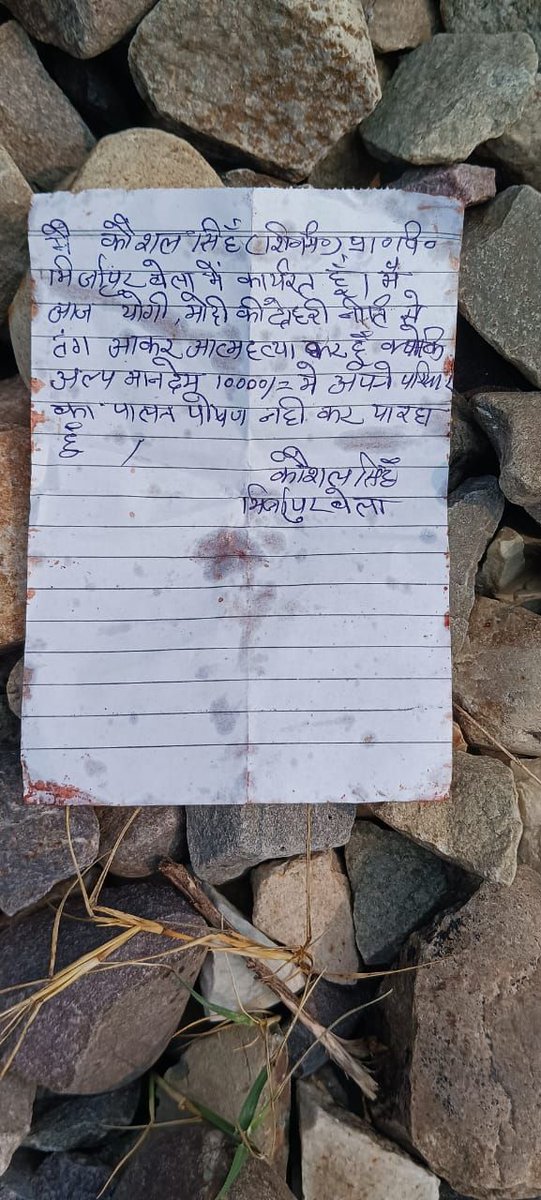 मै कौशल सिहँ (शि०मि०) प्रा०वि०
मिर्जापुर बेला मैं कार्यरत हूँ। मै
आज योगी, मोदी की दोहरी नीति से
तंग आकर आत्महत्या कर हूँ क्योंकि
अल्प मानदेय 10000/= मे अपने परिवार
का पालन पोषण नही कर पारहा
हूँ /
कौशल सिहँ
मिर्जापुर बेला